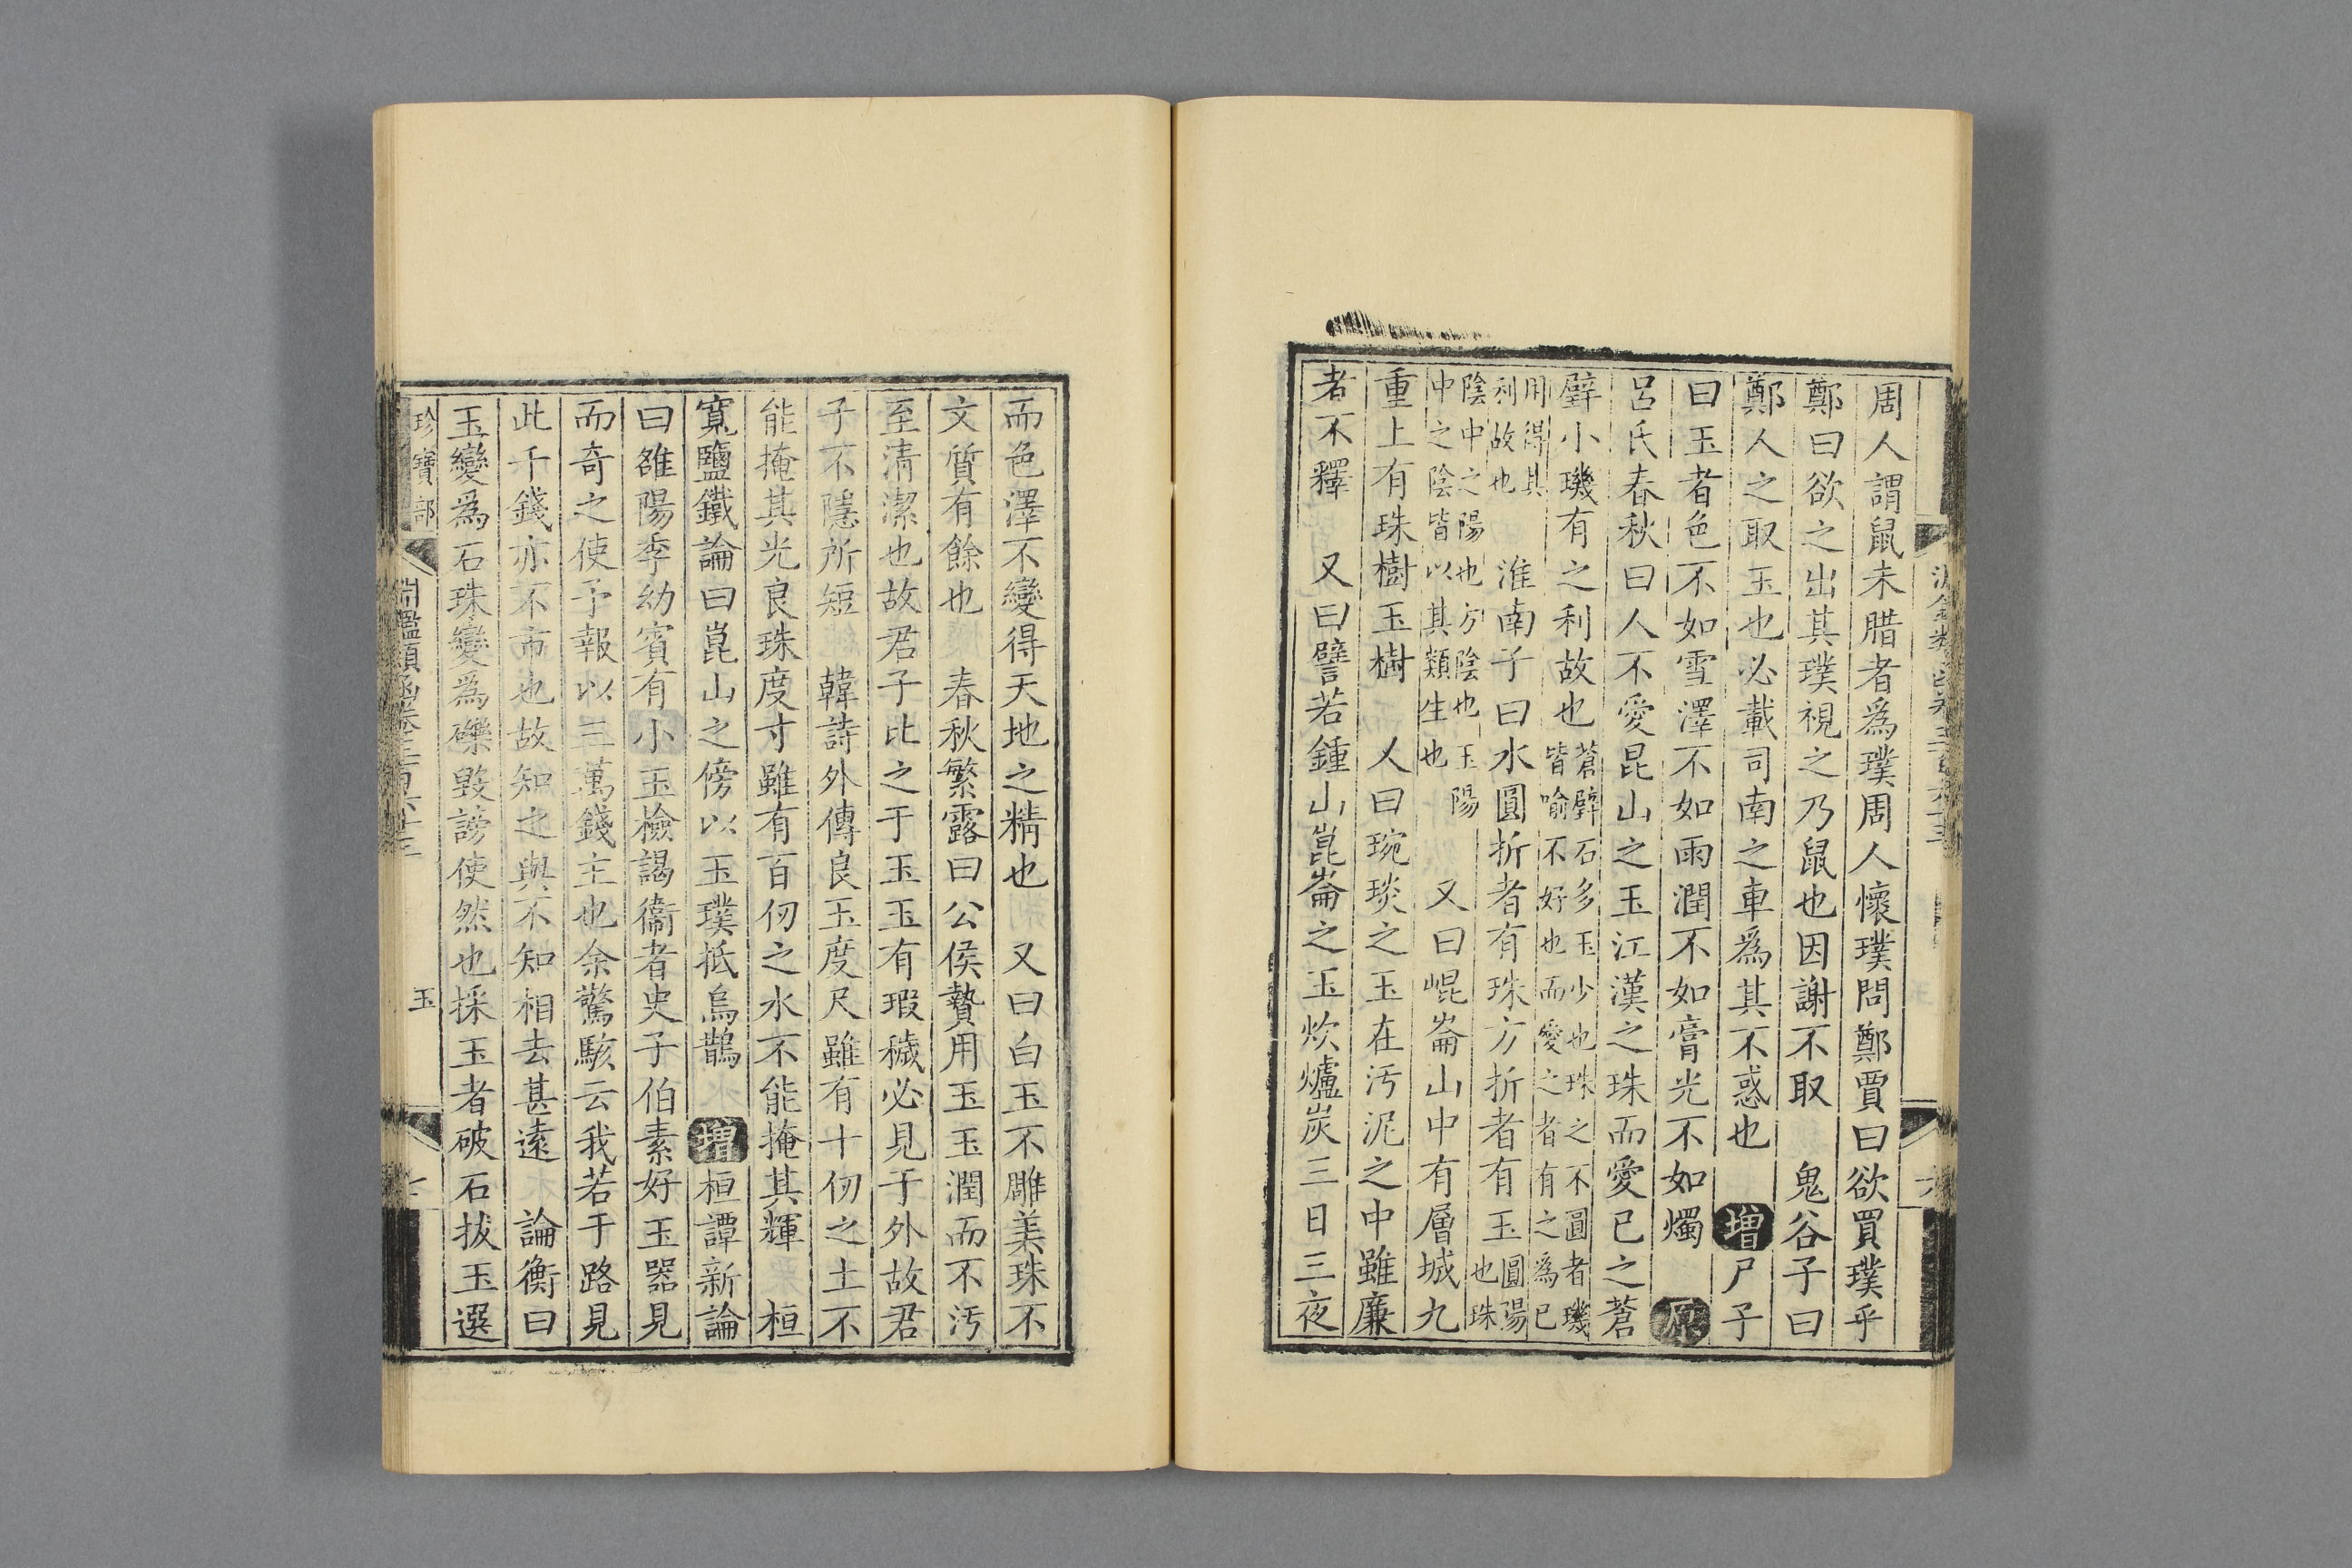 周人謂鼠未腊者爲璞周人懷璞問鄭賈曰欲買璞乎
鄭曰欲之出其璞視之乃鼠也因謝不取 鬼谷子曰
鄭人之取玉也必載司南之車爲其不惑也 增 尸子
曰玉者色不如雪澤不如雨潤不如膏光不如燭 原
呂氏春秋曰人不愛昆山之玉江漢之珠而愛已之蒼
璧小璣有之利故也 蒼璧石多玉少也珠之不圓者璣
皆喻不好也而愛之者有之爲已
用得其
利故也 淮南子曰水圓折者有珠方折者有玉 圓陽
也珠
陰中之陽也方陰也玉陽
中之陰皆以其類生也 又曰崐崙山中有層城九
重上有珠樹玉樹 又曰琬琰之玉在汚泥之中雖廉
者不釋 又曰譬若鍾山崑崙之玉炊爐炭三日三夜
而色澤不變得天地之精也 又曰白玉不雕美珠不
文質有餘也 春秋繁露曰公侯贄用玉玉潤而不汚
至清潔也故君子比之于玉玉有瑕穢必見于外故君
子不隱所短 韓詩外傳良玉度尺雖有十仞之土不
能掩其光良珠度寸雖有百仞之水不能掩其輝 桓
寬鹽鐵論曰崑山之傍以玉璞抵烏鵲 增 桓譚新論
曰雒陽季幼賓有小玉檢謁衞者史子伯素好玉器見
而奇之使予報以三萬錢主也余驚駭云我若于路見
此千錢亦不市也故知之與不知相去甚遠 論衡曰
玉變爲石珠變爲礫毀謗使然也採玉者破石拔玉選
珍寶部 淵鑑類函卷三百六十三 玉